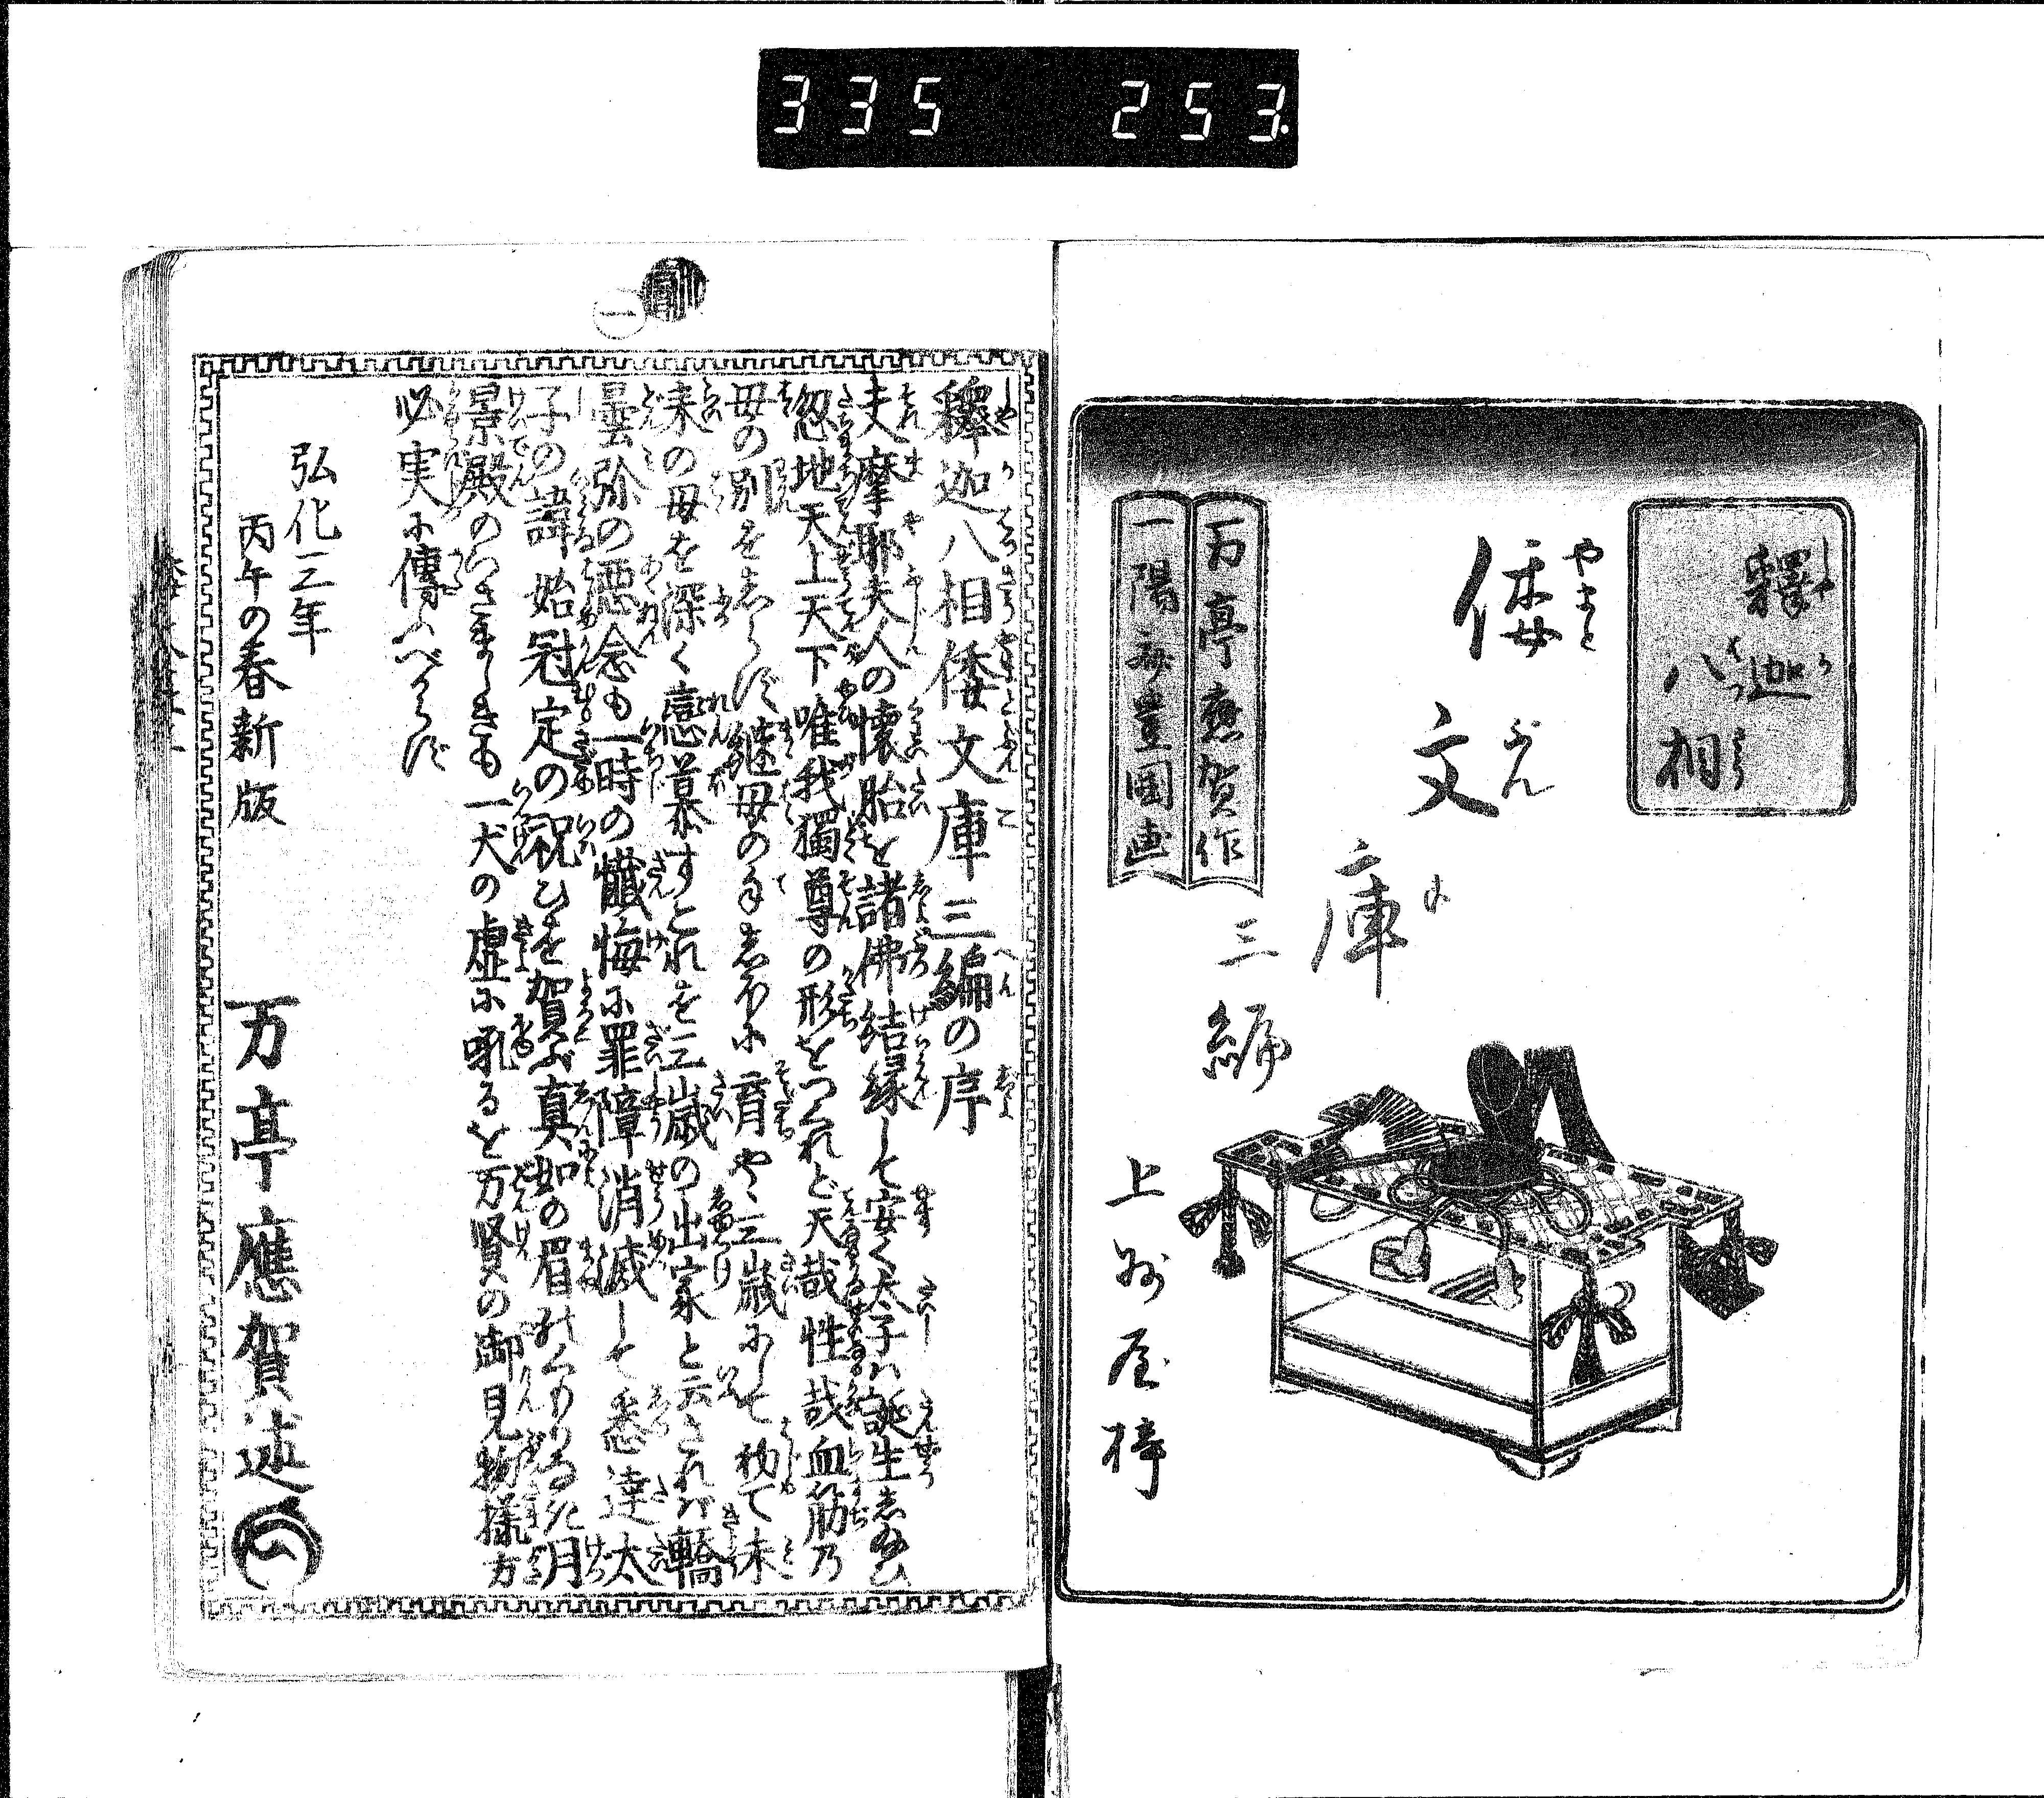 335 253
釋迦
八相
倭
文
庫
三編
万亭應賀作
一陽齋豊国画
上州屋梓
釋迦八相倭文庫三編の序
夫摩耶夫人の懐胎を諸佛結縁して安く太子ハ誕生し給ひ
忽地天上天下唯我獨尊の形をつくれど天哉性哉血筋乃
母の別をしらず継母の手しほに育やゝ三歳にして初て未
来の母を深く戀慕すこれを三歳の出家と云されバ轎
曇弥の悪念も一時の懺悔に罪障消滅して悉達太
子の諱始冠定の祝ひを賀ぶ真如の眉
月
景殿の
も一犬の虚に吼るを万賢の御見物様方
必実に傳ふべからず
弘化三年
丙午の春新版
万亭應賀述
一